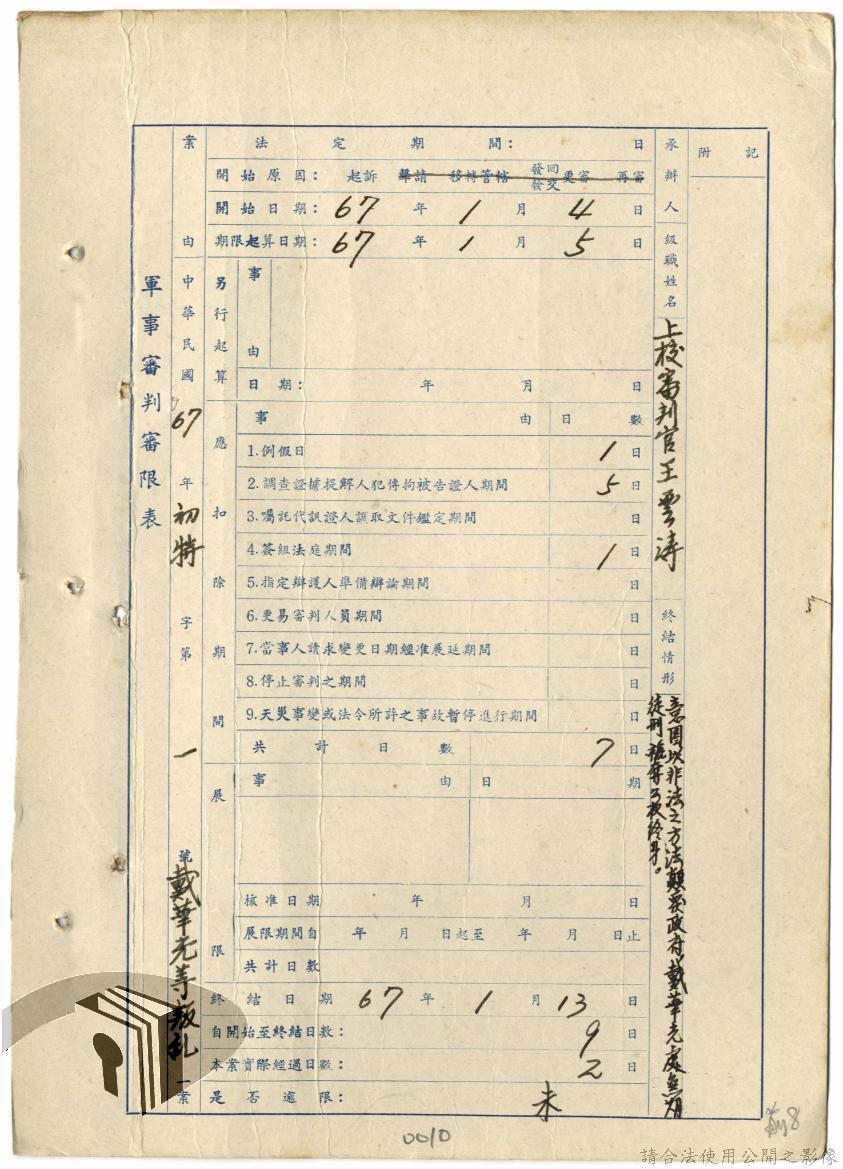 軍事審判審限表
案由 中華民國 67 年 初特 字第 一 號 戴華光等叛乱 一案
法定期間： 日
開始原因： 起訴 聲請 移轉管轄 發回 發交 更審 再審
開始日期： 67 年 1 月 4 日
期限起算日期： 67 年 1 月 5 日
另行起算
事由
日期： 年 月 日
應扣除期間
事由 日數
1.例假日 1 日
2.調查證據提解人犯傳拘被告證人期間 5 日
3.囑託代訊證人調取文件鑑定期間 日
4.簽組法庭期間 1 日
5.指定辯護人準備辯論期間 日
6.更易審判人員期間 日
7.當事人請求變更日期經准展延期間 日
8.停止審判之期間 日
9.天災事變或法令所許之事故暫停進行期間 日
共計日數 7 日
展限
事由 日期
核准日期 年 月 日
展限期間自 年 月 日起至 年 月 日止
共計日數
終結日期 67 年 1 月 13 日
自開始至終結日數： 9 日
本案實際經過日數： 2 日
是否逾限： 未
承辦人級職姓名 上校審判官王雲濤
終結情形 意圖以非法之方法顛覆政府，戴華光處無期
徒刑褫奪公權終身。
附記
0010
請合法使用公開之影像